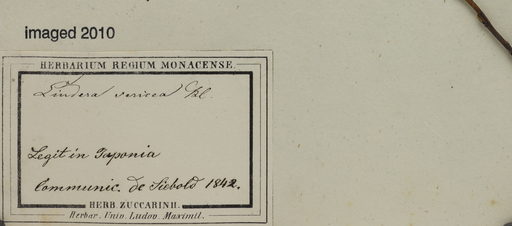 imaged 2010
HERBARIUM REGIUM MONACENSE.
Lindera sericea Bl.
Legit in Japonia
Communic. de Siebold 1842.
HERB. ZUCCARINII.
Herbar. Univ. Ludov. Maximil.